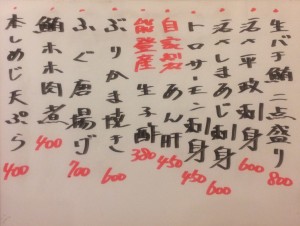 生バチ鮪二点盛り 800
活〆平政刺身 600
活〆しまあじ刺身 600
トロサーモン刺身 450
自家製あん肝 450
能登産生子酢 380
ぶりかま焼き 600
ふぐ唐揚げ 700
鮪ホホ肉煮 400
本しめじ天ぷら 400